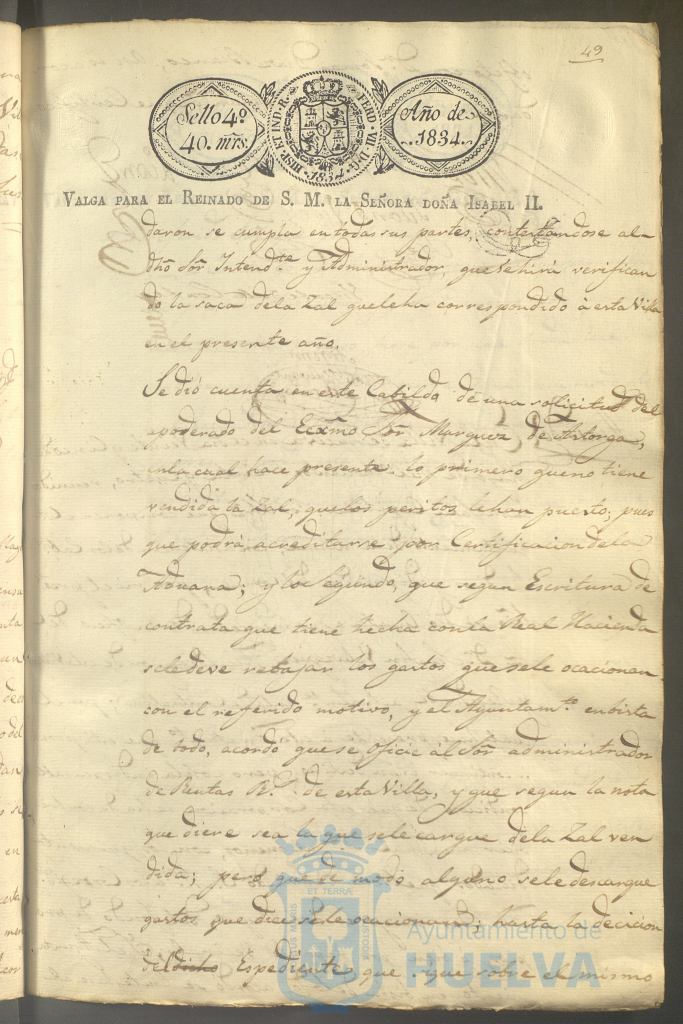 49
Sello 4º
40. mrs.
HISP. ET IND. R. FERD. VII. D. G.
1834
Año de
1834.
VALGA PARA EL REINADO DE S. M. LA SEÑORA DOÑA ISABEL II.
daron se cumpla en todas sus partes, contestandose al
dho Sor Intendte y Administrador, que se hirá verifican
do la saca dela Zal que leha correspondido à esta Villa
en el presente año.
Se dió cuenta en este Cabildo de una solicitud del
apoderado del Eexmo Sor Marquez de Astorga,
enla cual hace presente lo primero queno tiene
vendida la Zal, quelos peritos lehan puesto, pues
que podrá acreditarse por Certificacion dela
Aduana; y lo Segundo, que segun Escritura de
contrata que tiene hecha conla Real Hacienda
seledeve rebajar los gastos quesele ocacionan
con el referido motivo, y el Ayuntamto enbista
de todo, acordó quese oficie àl Sor administrador
de Rentas Rs. de esta Villa, y que segun la nota
que diere sea la que sele cargue dela Zal ven
dida; pero que de modo alguno sele descargue
gastos que dice sele ocacionaron; hasta la decicion
del dicho Espediente que sigue sobre el mismo
ET TERRA
CUSTODIA
Ayuntamiento de
HUELVA